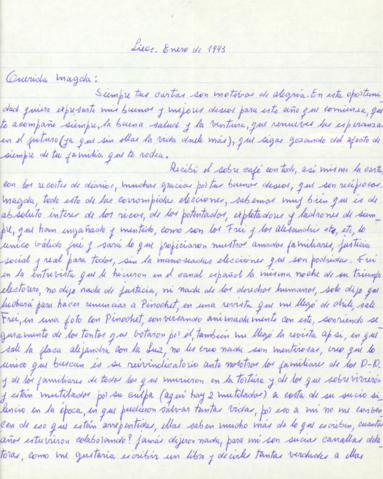 Enero de 1993
Querida Magda:
Siempre tus cartas son motivos de alegria. En esta oportuni
dad quiero expresarte mis buenos y mejores deseos para este año que comienza, que
te acompañe siempre, la buena salud y la ventura, que renueves las esperanzas
en el futuro (ya que sin ellas la vida duele más), que sigas gozando del afecto de
siempre de tu familia que te rodea.
Recibí el sobre café con todo, asi mismo la carta
con los recortes de diarios, muchas gracias por tus buenos deseos, que son recíprocos
Magda, todo esto de las corrompidas elecciones, sabemos muy bien que es de
absoluto interes de los ricos, de los potentados, explotadores y ladrones de siem
pre, que han engañado y mentido, como son los Frei y los Alessandris etc, etc, lo
unico válido fué y será lo que propiciaron nuestros amados familiares, justicia
social y real para todos, sin la manoseadas elecciones que son podridas. Frei
en la entrevista que le hicieron en el canal español la misma noche de su triunfo
electorero, no dijo nada de justicia, ni nada de los derechos humanos, solo dijo que
lucharía para hacer renunciar a Pinochet, en una revista que me llegó de chile sale
Frei, en una foto con Pinochet, conversando animadamente con este, sonriendo se
guramente de los tontos que votaron por él, también me llegó la revista apsi, en que
sale la flaca alejandra con la Luz, no les creo nada son mentirosas, creo que lo
unico que buscan es su reivindicatorio ante nosotros los familiares de los D-D.
y de los familiares de todos los que murieron en la tortura y de los que sobrevivieron
y están mutilados por su culpa (aqui hay 2 mutilados) a costa de su sucio si
lencio en la época, en que pudieron salvar tantas vidas, por eso a mi no me
de eso que están arrepentidas, ellas saben mucho más de lo que escriben, cuantos
años estuvieron colaborando? Jamás dijeron nada, para mi son sucias canallas dela
toras, como me gustaria escribir un libro y decirles tantas verdades a ellas